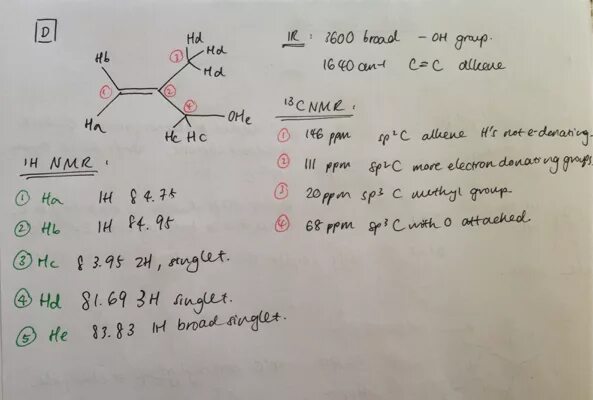 D
IR : 3600 broad - OH group.
1640 cm-1 C=C alkene
Hb
Ha
Hd
Hd
Hd
①
②
③
④
OHe
Hc Hc
13C NMR :
① 146 ppm sp2C alkene H's not e-donating.
② 111 ppm sp2C more electron donating groups
③ 20ppm sp3 C methyl group.
④ 68 ppm sp3 C with O attached.
1H NMR :
① Ha 1H δ4.75
② Hb 1H δ4.95
③ Hc δ3.95 2H, singlet.
④ Hd δ1.69 3H singlet.
⑤ He δ3.83 1H broad singlet.